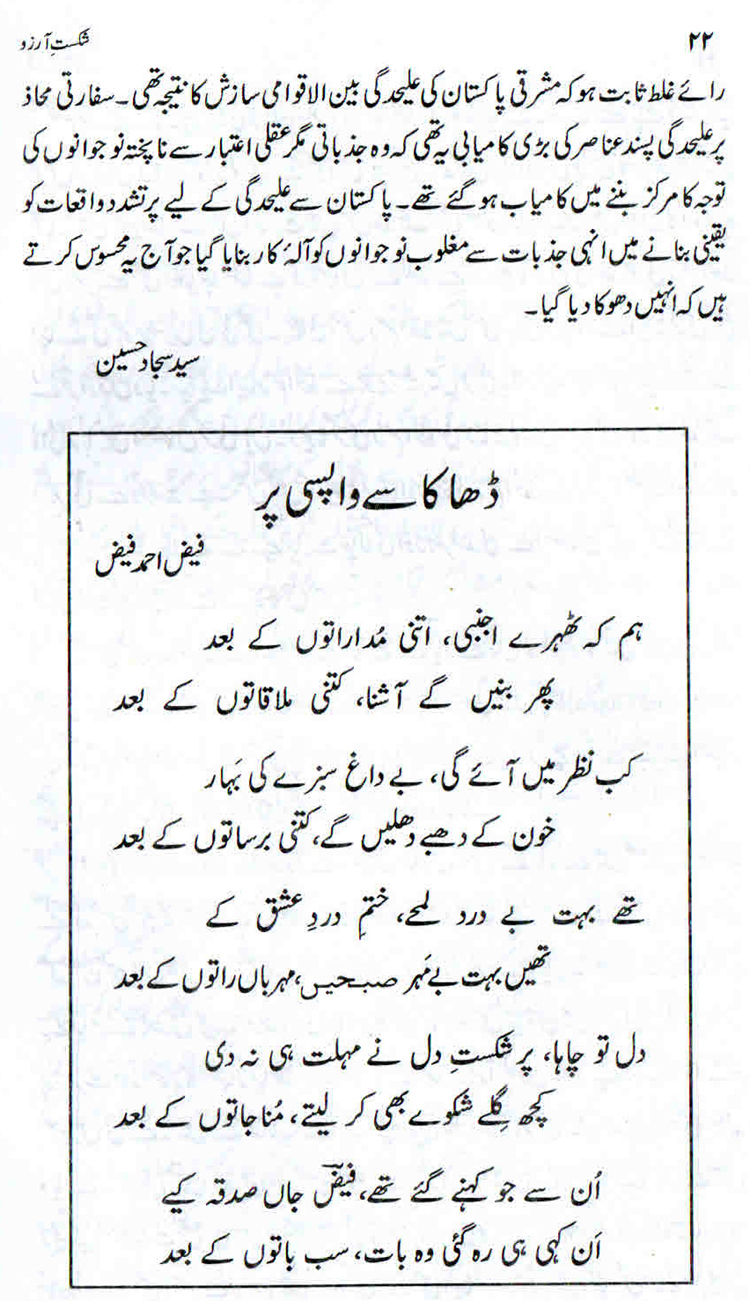 ۲۲
شکستِ آرزو
رائے غلط ثابت ہو کہ مشرقی پاکستان کی علیحدگی بین الاقوامی سازش کا نتیجہ تھی۔ سفارتی محاذ
پر علیحدگی پسند عناصر کی بڑی کامیابی یہ تھی کہ وہ جذباتی مگر عقلی اعتبار سے ناپختہ نوجوانوں کی
توجہ کا مرکز بننے میں کامیاب ہو گئے تھے۔ پاکستان سے علیحدگی کے لیے پرتشدد واقعات کو
یقینی بنانے میں انہی جذبات سے مغلوب نوجوانوں کو آلۂ کار بنایا گیا جو آج یہ محسوس کرتے
ہیں کہ انہیں دھوکا دیا گیا۔
سید سجاد حسین
ڈھاکا سے واپسی پر
فیض احمد فیض
ہم کہ ٹھہرے اجنبی، اتنی مُداراتوں کے بعد
پھر بنیں گے آشنا، کتنی ملاقاتوں کے بعد
کب نظر میں آئے گی، بے داغ سبزے کی بَہار
خون کے دھبے دھلیں گے، کتنی برساتوں کے بعد
تھے بہت بے درد لمحے، ختمِ دردِ عشق کے
تھیں بہت بے مَہر صبحیں، مہرباں راتوں کے بعد
دل تو چاہا، پر شکستِ دل نے مہلت ہی نہ دی
کچھ گِلے شکوے بھی کر لیتے، مُناجاتوں کے بعد
اُن سے جو کہنے گئے تھے، فیضؔ جاں صدقہ کیے
اَن کہی ہی رہ گئی وہ بات، سب باتوں کے بعد